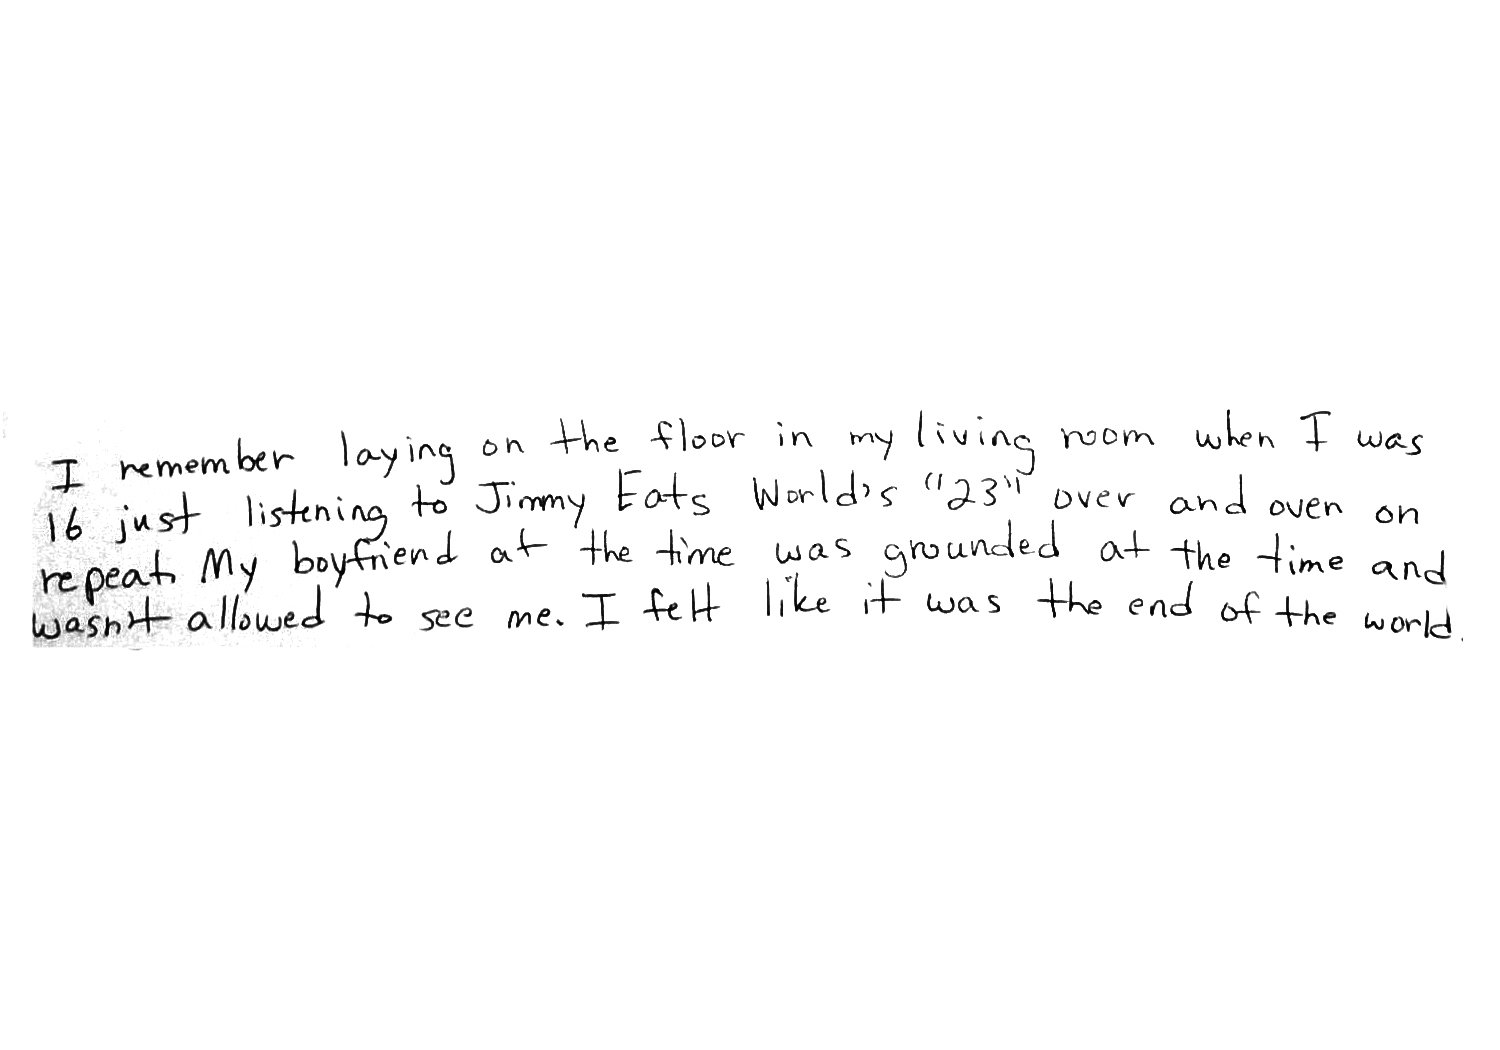 I remember laying on the floor in my living room when I was
16 just listening to Jimmy Eats World's "23" over and over on
repeat. My boyfriend at the time was grounded at the time and
wasn't allowed to see me. I felt like it was the end of the world.